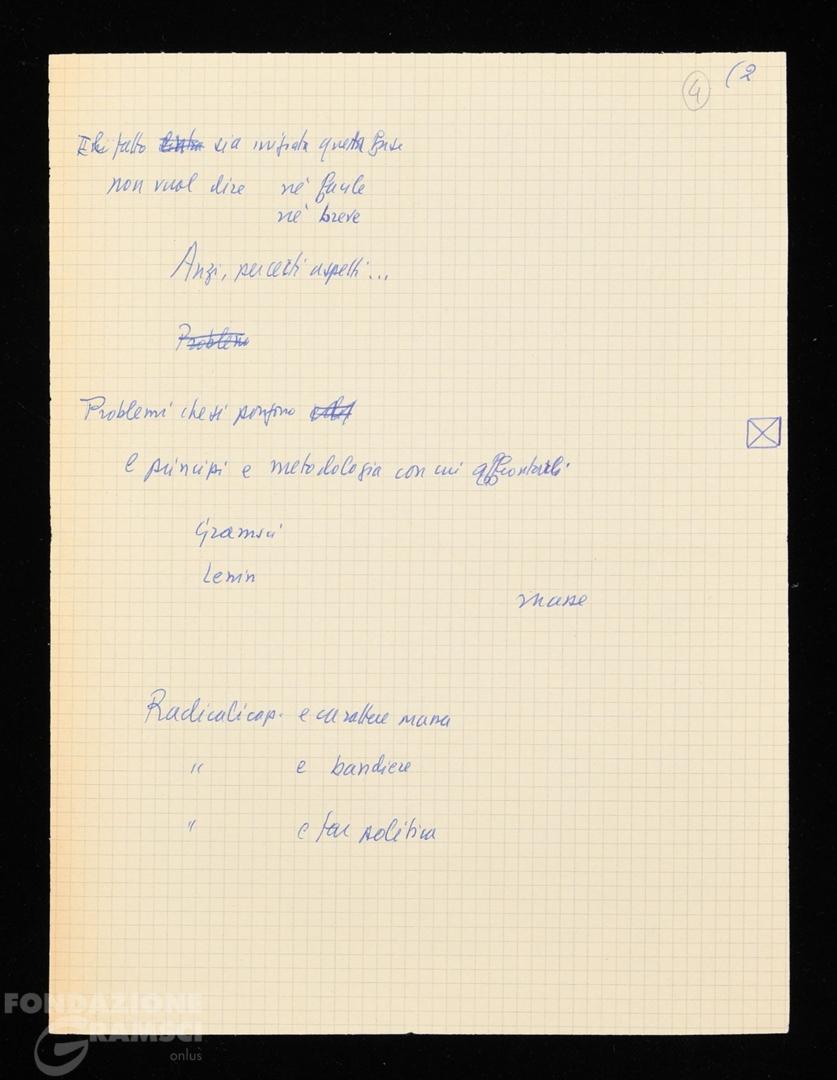 4 (2
fatto sia iniziata questa fase
non vuol dire né facile
né breve
Anzi, per certi aspetti...
Problem
Problemi che si pongono
e principi e metodologia con cui affrontarli
Gramsci
Lenin
masse
Radicalizzaz. e carattere massa
" e bandiere
" e far politica
FONDAZIONE
GRAMSCI
onlus